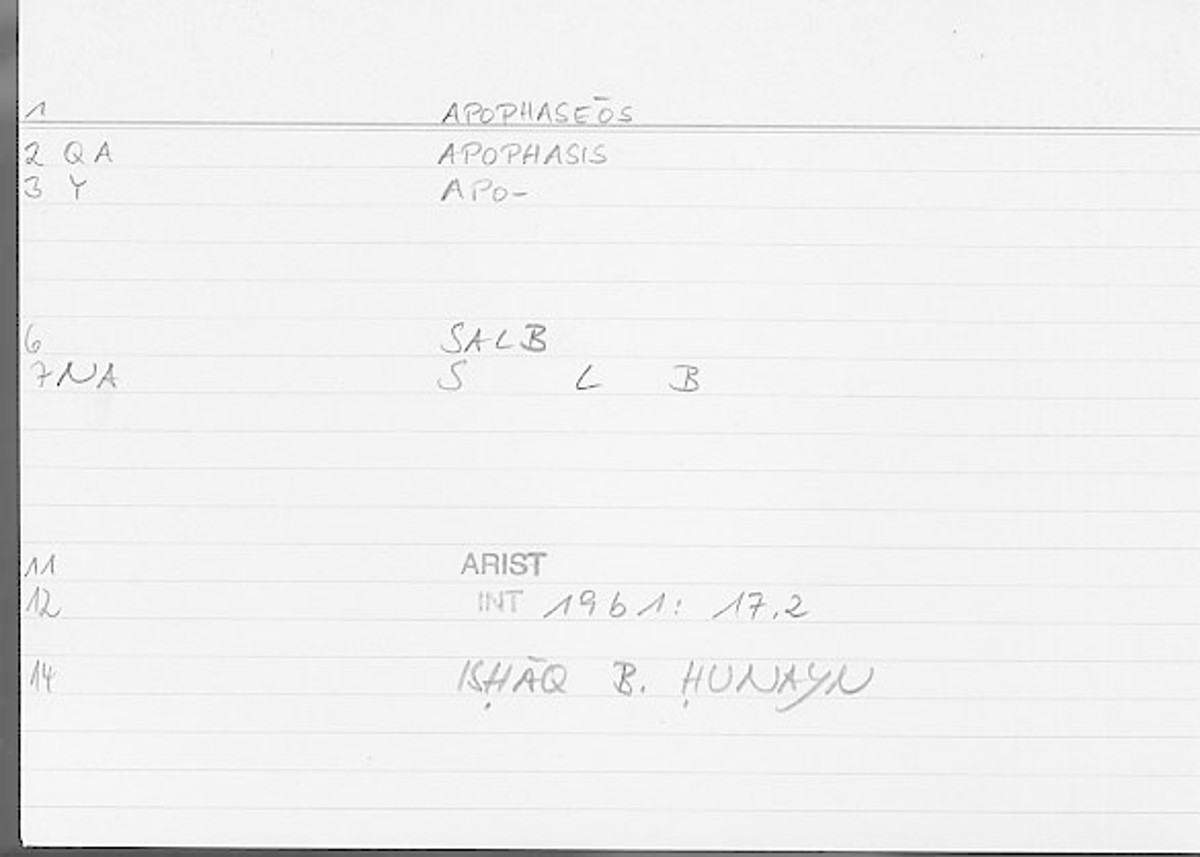 1 APOPHASEŌS
2 QA APOPHASIS
3 Y APO-
6 SALB
7 NA S L B
11 ARIST
12 INT 1961: 17.2
14 ISḤĀQ B. ḤUNAYN